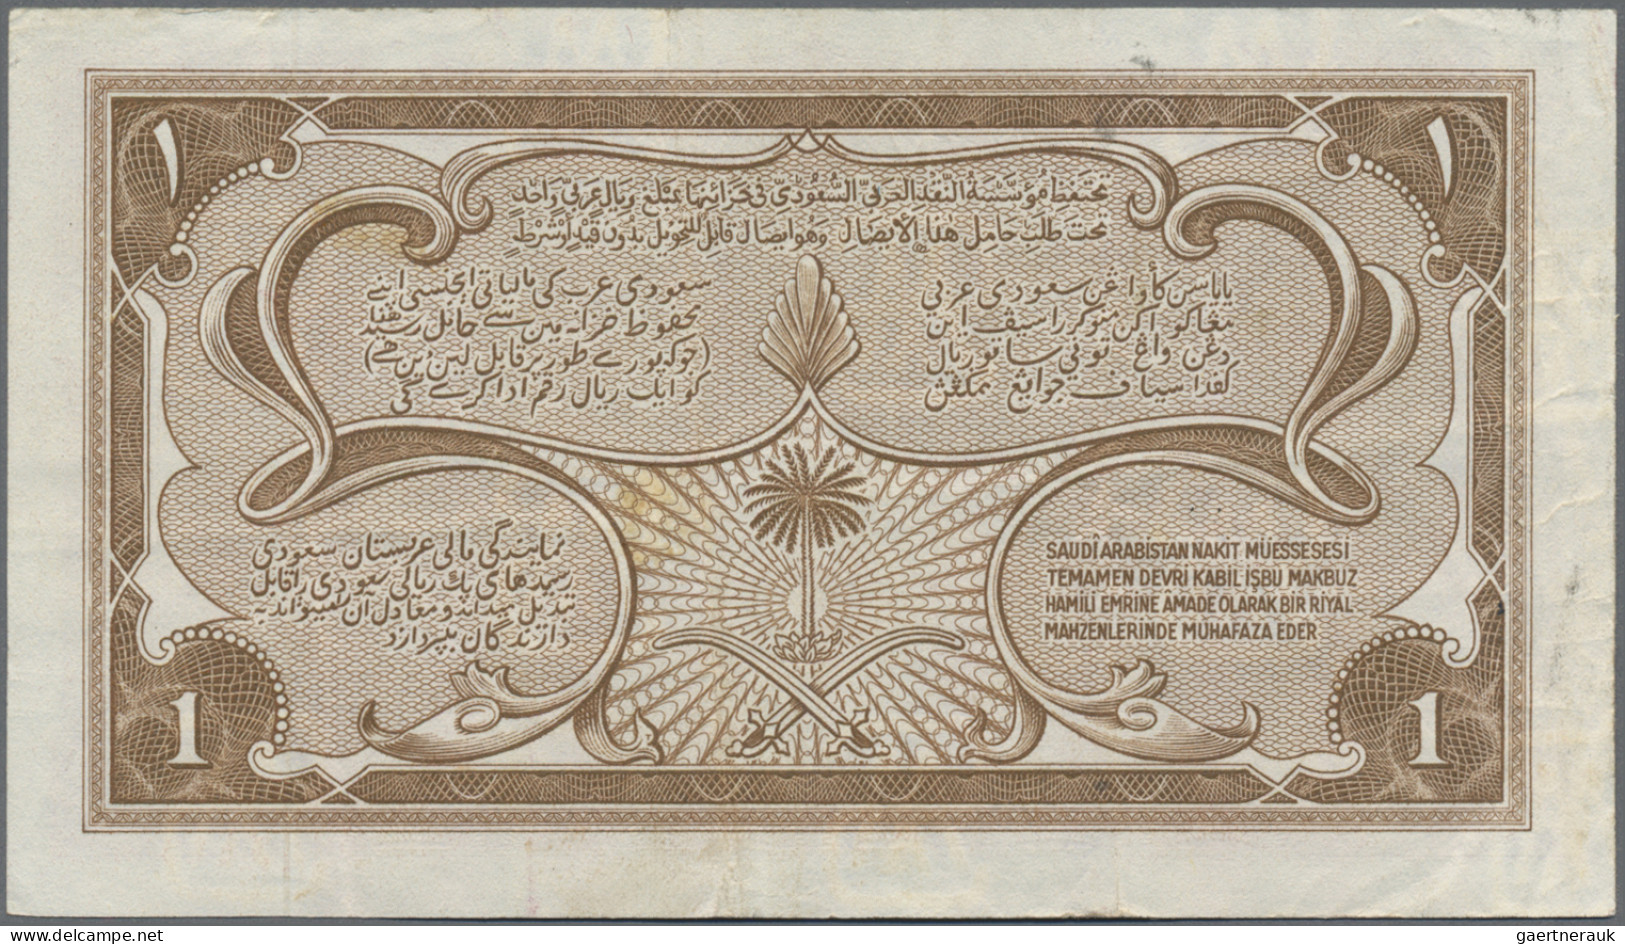 ١
١
تحتفظ مؤسسة النقد العربي السعودي في خزائنها بمبلغ ريال عربي واحد
تحت طلب حامل هذا الإيصال وهو إيصال قابل للتحويل بدون قيد أو شرط
ياياسن كأواڠن سعودي عربي
دڠن واڠ توني ساتو ريال
سعودی عرب کی مالیاتی ایجنسی اپنے
محفوظ خزانہ میں سے حامل رسید ھٰذا
(جو کہ پورے طور پر قابل لین دین ھے)
کو ایک ریال رقم ادا کرے گی
نمایندگی مالی عربستان سعودی
رسیدهای یك ریالی سعودی را قابل
تبدیل میداند و معادل آن میتواند به
دارندگان بپردازد
SAUDÎ ARABİSTAN NAKİT MÜESSESESİ
TEMAMEN DEVRİ KABİL İŞBU MAKBUZ
HAMİLİ EMRİNE ÂMADE OLARAK BİR RİYAL
MAHZENLERİNDE MUHAFAZA EDER
1
1
www.delcampe.net
gaertnerauk